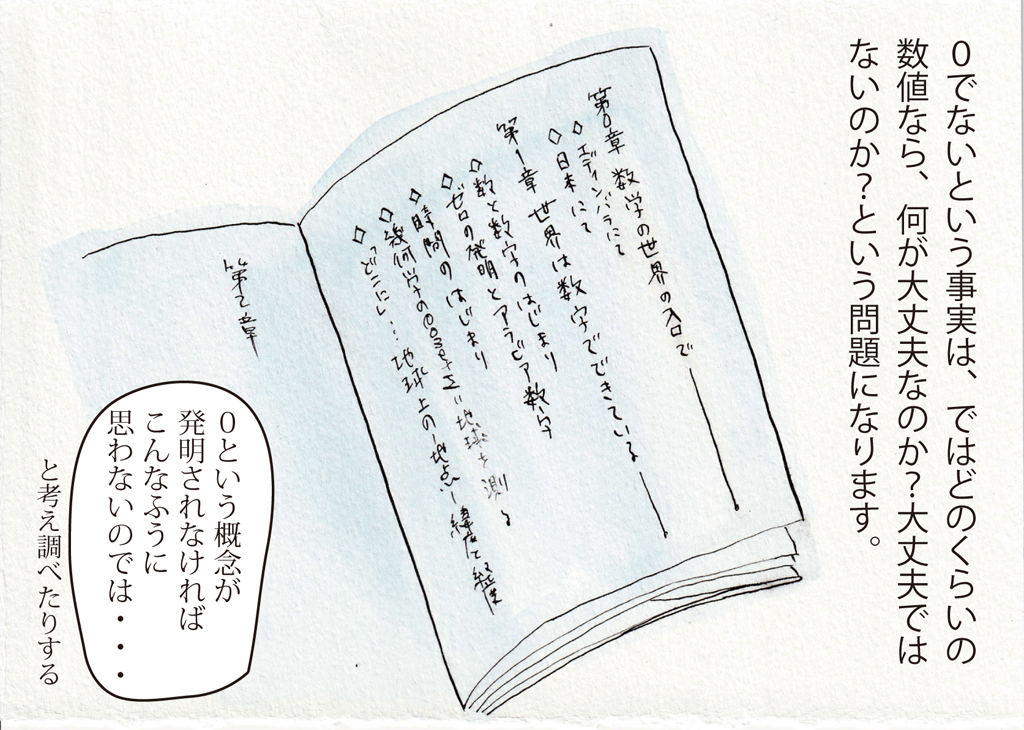 0でないという事実は、ではどのくらいの
数値なら、何が大丈夫なのか？大丈夫では
ないのか？という問題になります。
第0章 数学の世界の入口で――
◇エディンバラにて
◇日本にて
第1章 世界は数字でできている――
◇数と数字のはじまり
◇ゼロの発明とアラビア数字
◇時間のはじまり
◇幾何学の
地球を測る
◇「どこにし…地球上の地点」緯度と経度
第2章
0という概念が
発明されなければ
こんなふうに
思わないのでは・・・
と考え調べたりする